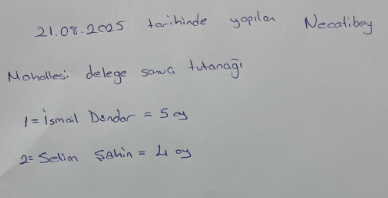 21.08.2025 tarihinde yapılan Necatibey
Mahallesi delege sonuc tutanağı
1= İsmail Dandar = 5 oy
2= Selim Şahin = 4 oy